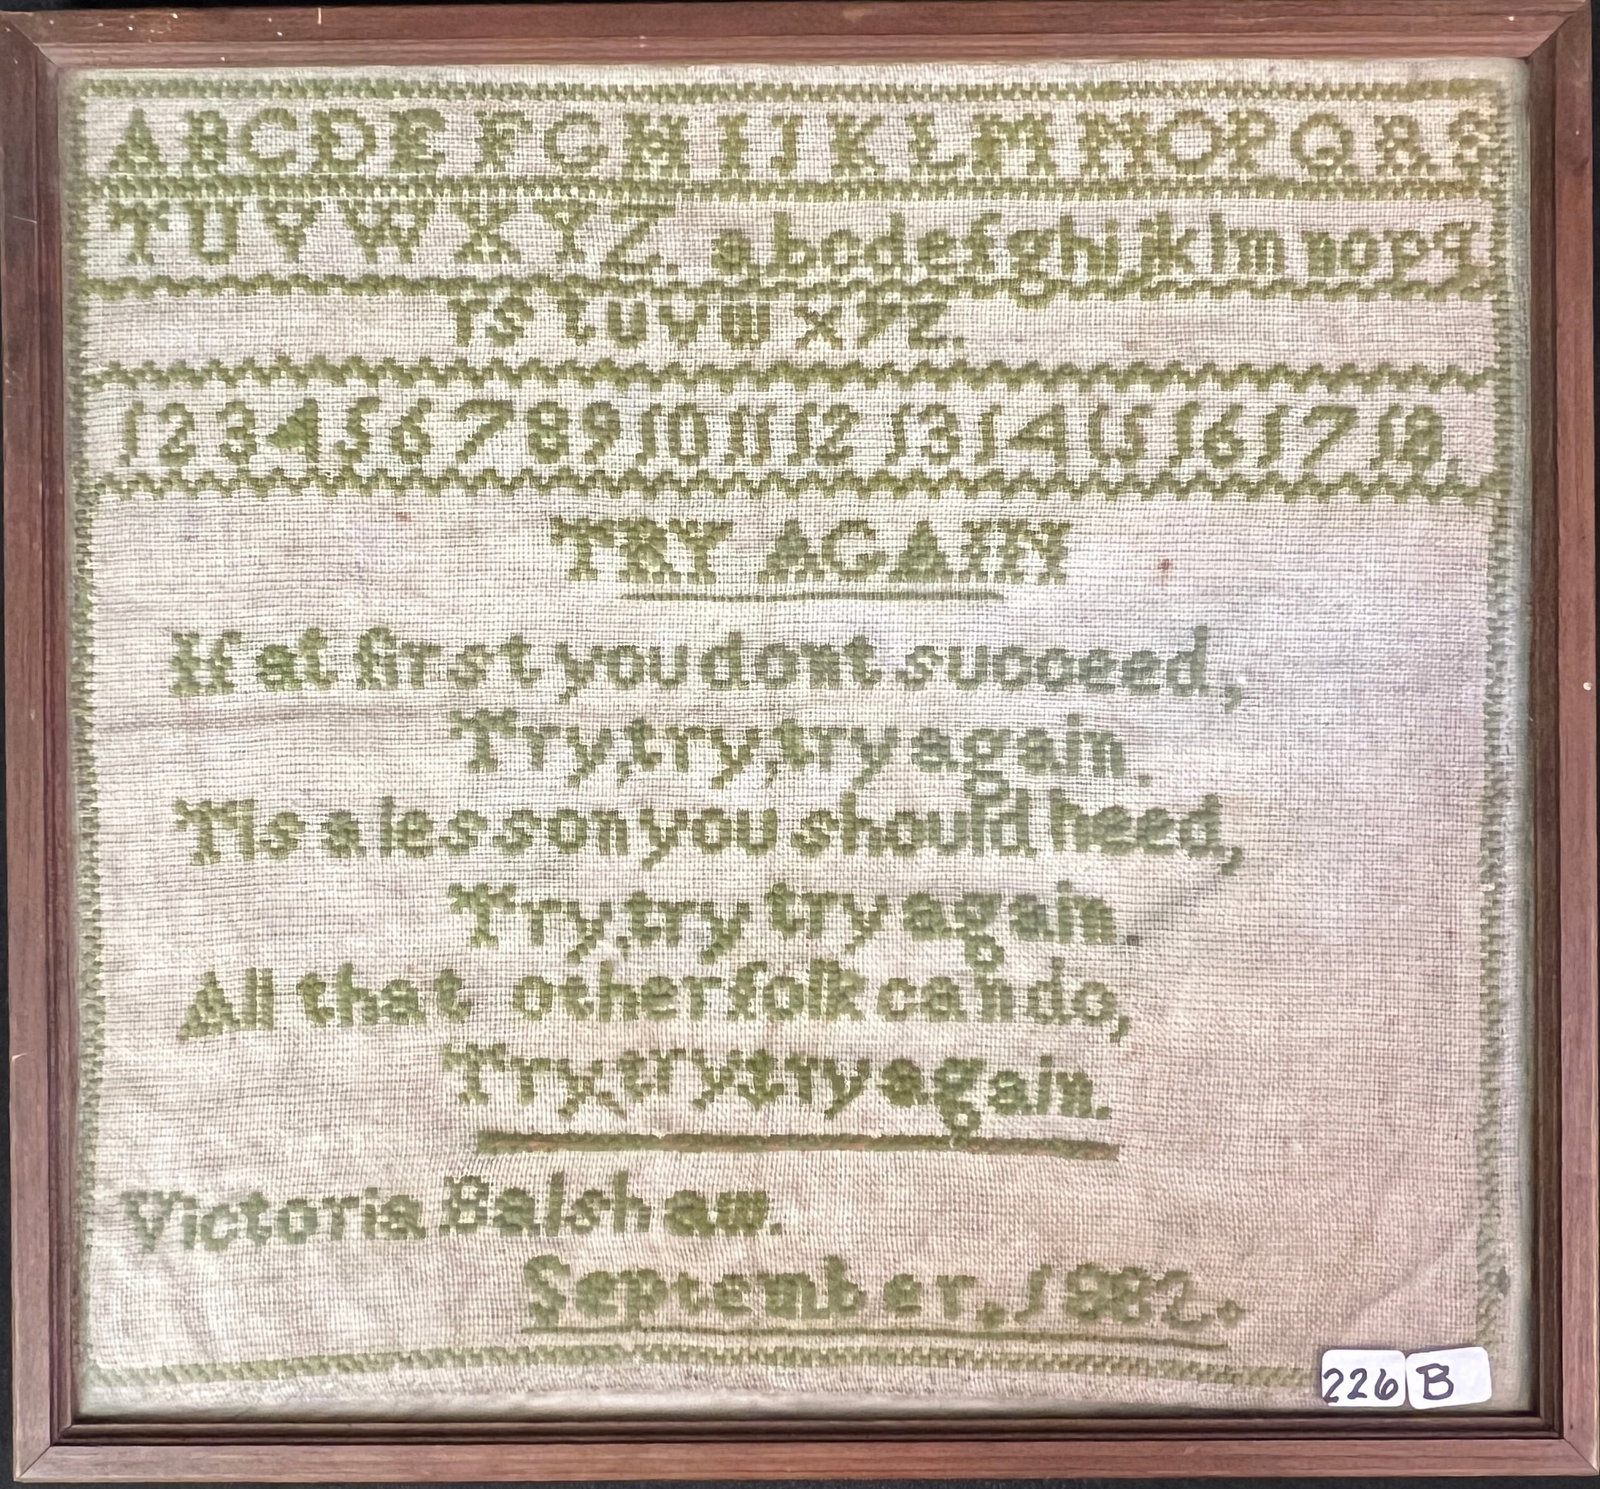 ABCDEFGHIJKLMNOPQRS
TUVWXYZ. abcdefghijklmnopq
rstuvwxyz.
1 2 3 4 5 6 7 8 9 10 11 12 13 14 15 16 17 18.
TRY AGAIN
If at first you dont succeed,
Try, try, try again.
Tis a lesson you should heed,
Try, try try again.
All that other folk can do,
Try, try, try again.
Victoria Balshaw.
September, 1882.
226 B